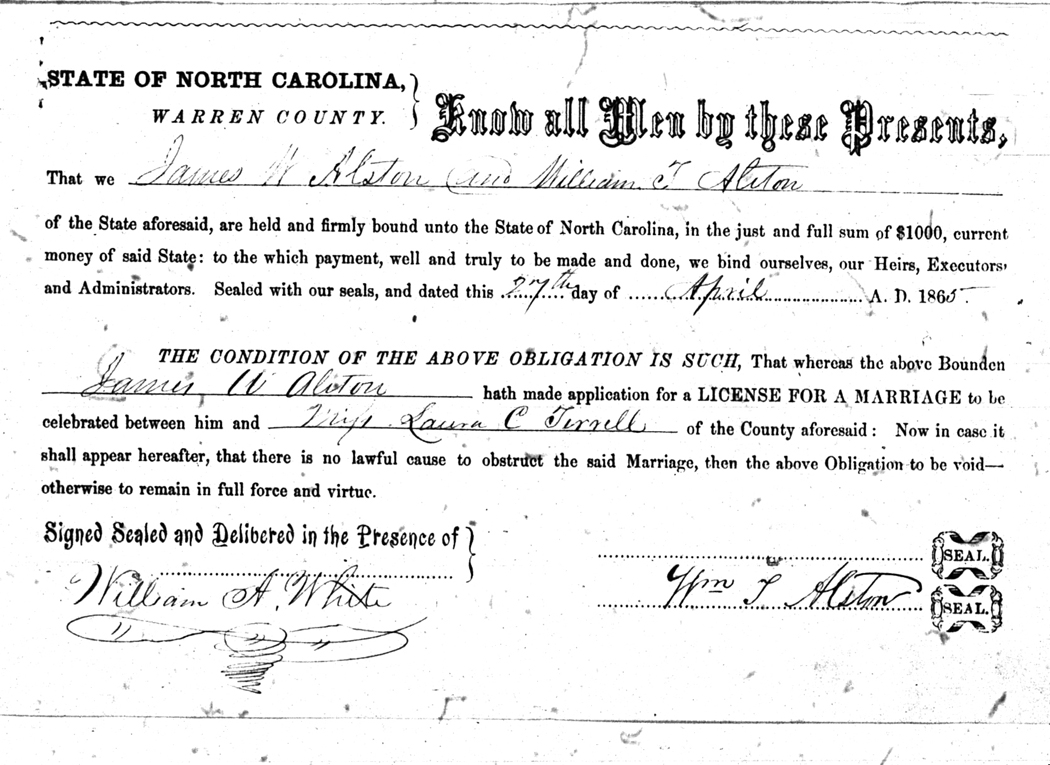 STATE OF NORTH CAROLINA,
WARREN COUNTY.
Know all Men by these Presents,
That we James W Alston and William T Alston
of the State aforesaid, are held and firmly bound unto the State of North Carolina, in the just and full sum of $1000, current
money of said State: to the which payment, well and truly to be made and done, we bind ourselves, our Heirs, Executors,
and Administrators. Sealed with our seals, and dated this 27th day of April A. D. 1865.
THE CONDITION OF THE ABOVE OBLIGATION IS SUCH, That whereas the above Bounden
James W Alston hath made application for a LICENSE FOR A MARRIAGE to be
celebrated between him and Miss Laura C Terrell of the County aforesaid: Now in case it
shall appear hereafter, that there is no lawful cause to obstruct the said Marriage, then the above Obligation to be void—
otherwise to remain in full force and virtue.
Signed Sealed and Delibered in the Presence of
SEAL.
William A. White
Wm T Alston SEAL.